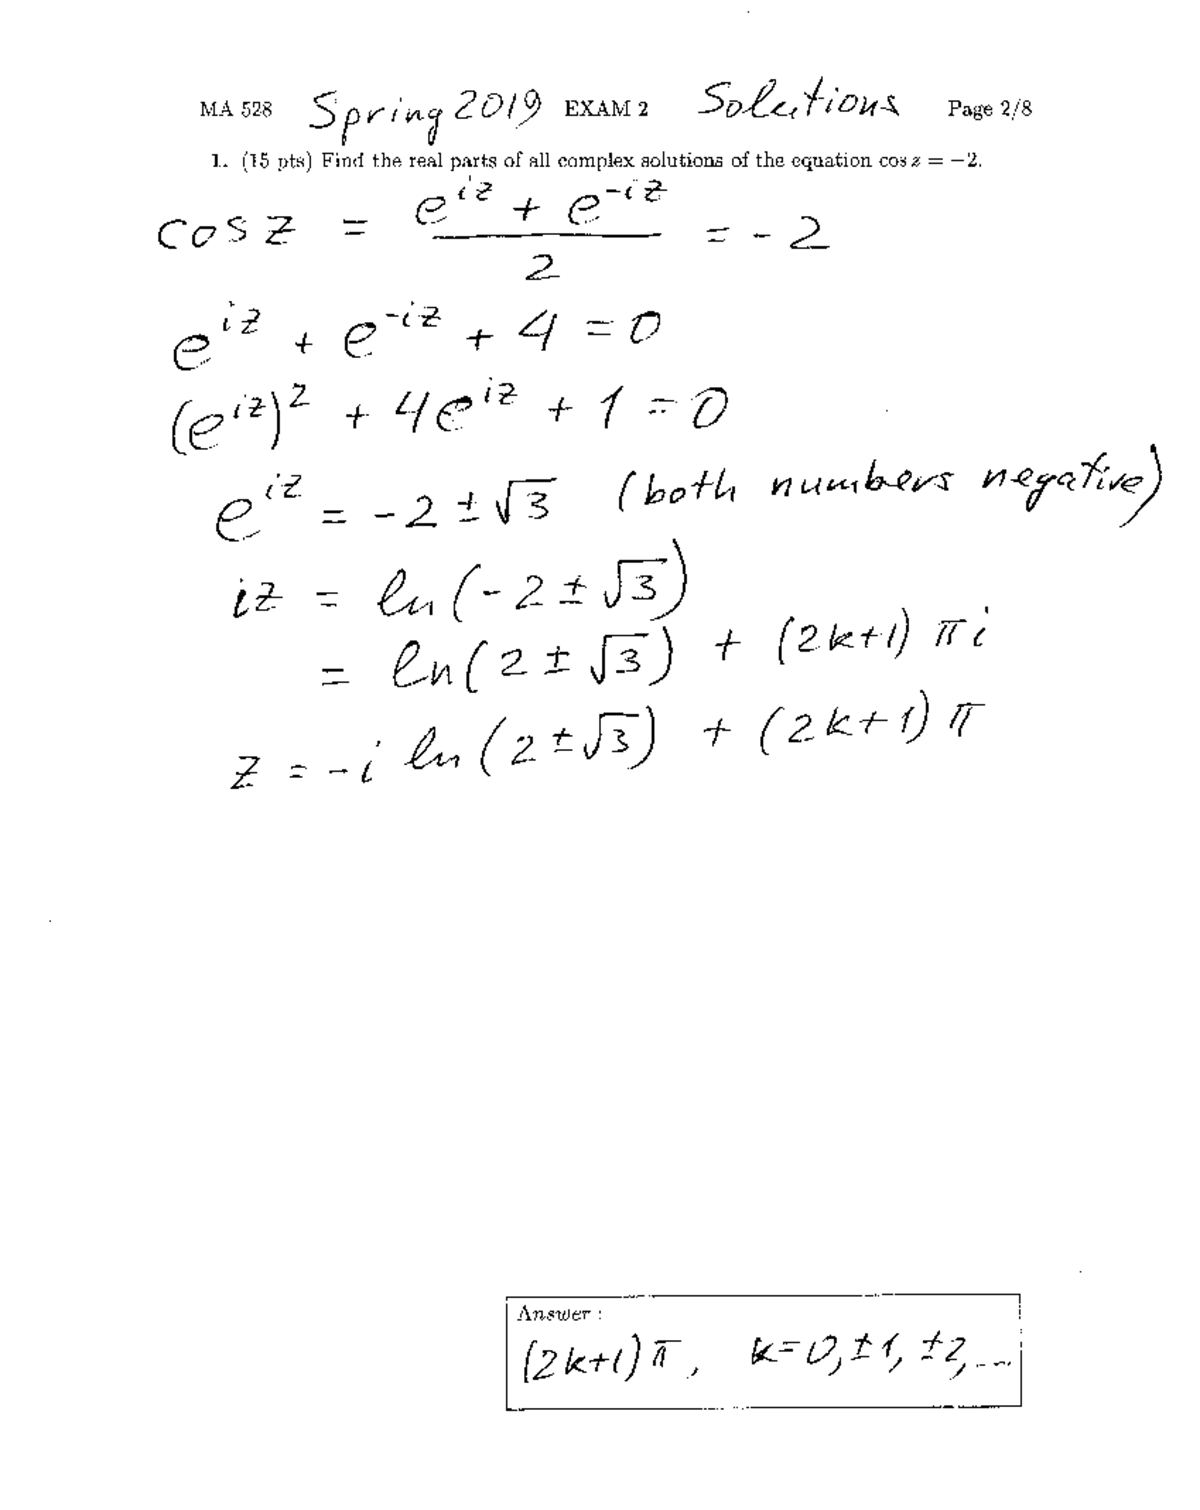 MA 528 Spring 2019 EXAM 2 Solutions Page 2/8
1. (15 pts) Find the real parts of all complex solutions of the equation cos z = −2.
cos z = (e^{iz} + e^{-iz})/2 = -2
e^{iz} + e^{-iz} + 4 = 0
(e^{iz})^2 + 4e^{iz} + 1 = 0
e^{iz} = -2 ± √3 (both numbers negative)
iz = ln(-2 ± √3)
= ln(2 ± √3) + (2k+1) π i
z = -i ln(2 ± √3) + (2k+1) π
Answer :
(2k+1) π, k = 0, ±1, ±2, ...